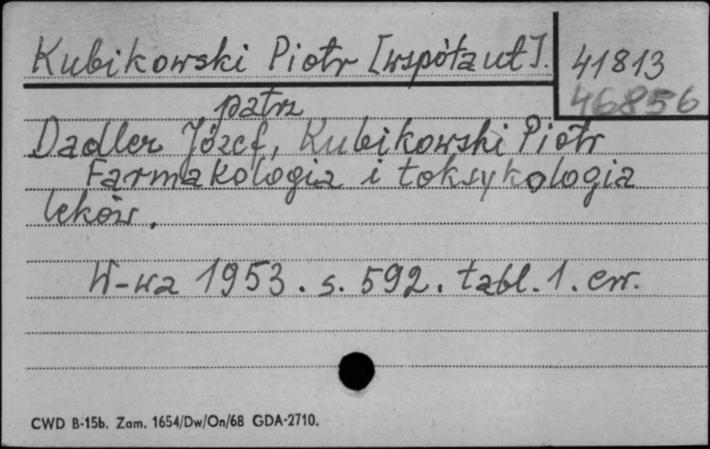 Kubikowski Piotr [współaut].
41813
46856
patrz
Dadler Józef, Kubikowski Piotr
Farmakologia i toksykologia
leków.
W-wa 1953. s. 592. tabl. 1. err.
CWD B-15b. Zam. 1654/Dw/On/68 GDA-2710.